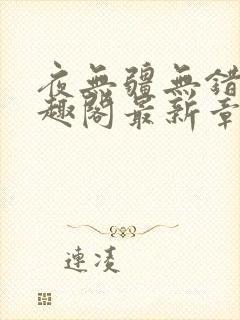 夜無疆無錯
趣閣最新章
連凌